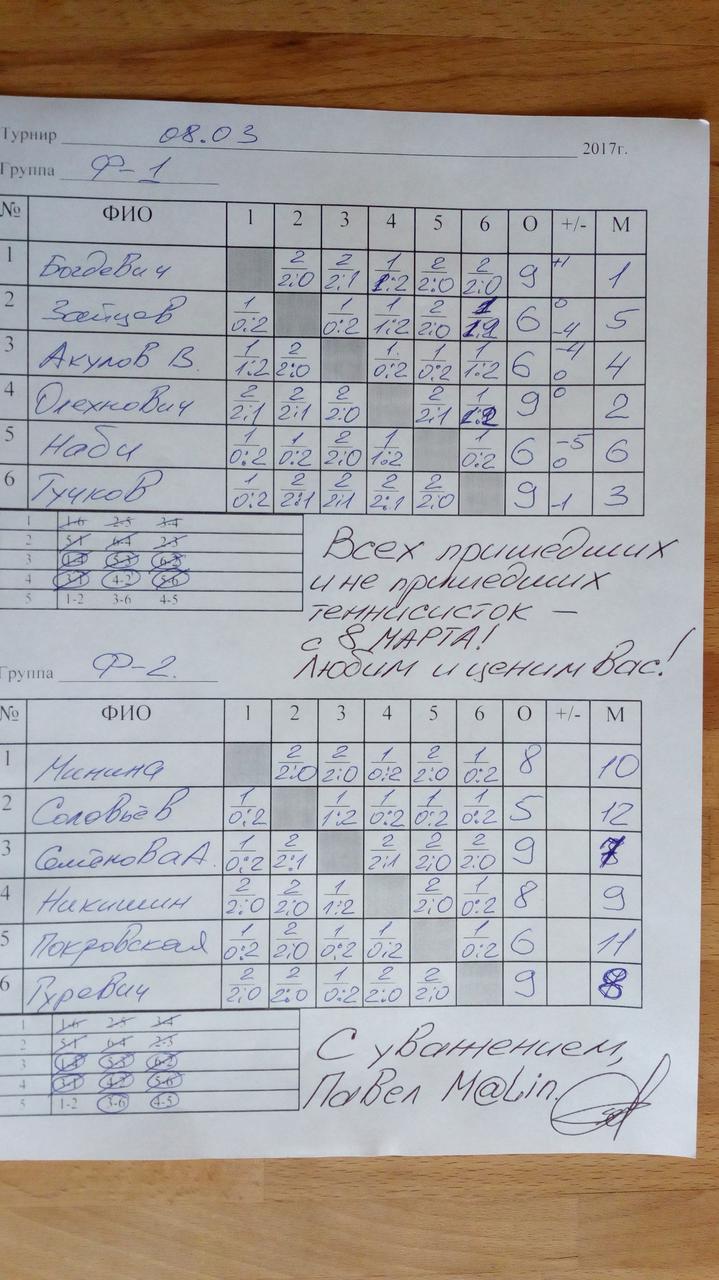 Турнир 08.03 2017г.
Группа Ф-1
№ ФИО 1 2 3 4 5 6 О +/- М
1 Богдевич 2 2:0 2 2:1 1 1:2 2 2:0 2 2:0 9 +1 1
2 Зайцев 1 0:2 1 0:2 1 1:2 2 2:0 1 1:2 6 0 -4 5
3 Акулов В. 1 1:2 2 2:0 1 0:2 1 0:2 1 1:2 6 -4 0 4
4 Олехнович 2 2:1 2 2:1 2 2:0 2 2:1 1 1:2 9 0 2
5 Наби 1 0:2 1 0:2 2 2:0 1 1:2 1 0:2 6 -5 0 6
6 Гучков 1 0:2 2 2:1 2 2:1 2 2:1 2 2:0 9 -1 3
1 1-6 2-5 3-4
2 5-1 6-4 2-3
3 1-4 5-3 6-2
4 3-1 4-2 5-6
5 1-2 3-6 4-5
Всех пришедших
и не пришедших
теннисисток —
с 8 МАРТА!
Любим и ценим Вас!
Группа Ф-2.
№ ФИО 1 2 3 4 5 6 О +/- М
1 Минина 2 2:0 2 2:0 1 0:2 2 2:0 1 0:2 8 10
2 Соловьёв 1 0:2 1 1:2 1 0:2 1 0:2 1 0:2 5 12
3 Семёнова А. 1 0:2 2 2:1 2 2:1 2 2:0 2 2:0 9 7
4 Никишин 2 2:0 2 2:0 1 1:2 2 2:0 1 0:2 8 9
5 Покровская 1 0:2 2 2:0 1 0:2 1 0:2 1 0:2 6 11
6 Гуревич 2 2:0 2 2:0 1 0:2 2 2:0 2 2:0 9 8
1 1-6 2-5 3-4
2 5-1 6-4 2-3
3 1-4 5-3 6-2
4 3-1 4-2 5-6
5 1-2 3-6 4-5
С уважением,
Павел M@Lin.